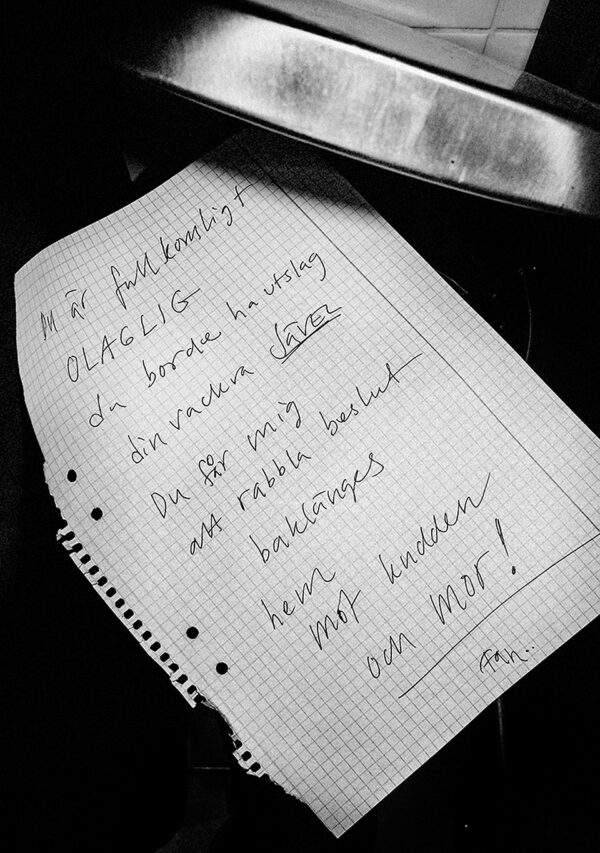 DU är fullkomligt
OLAGLIG
du borde ha utslag
din vackra JÄVEL
Du får mig
att rabbla beslut
baklänges
hem
mot kudden
och mor!
Fan..